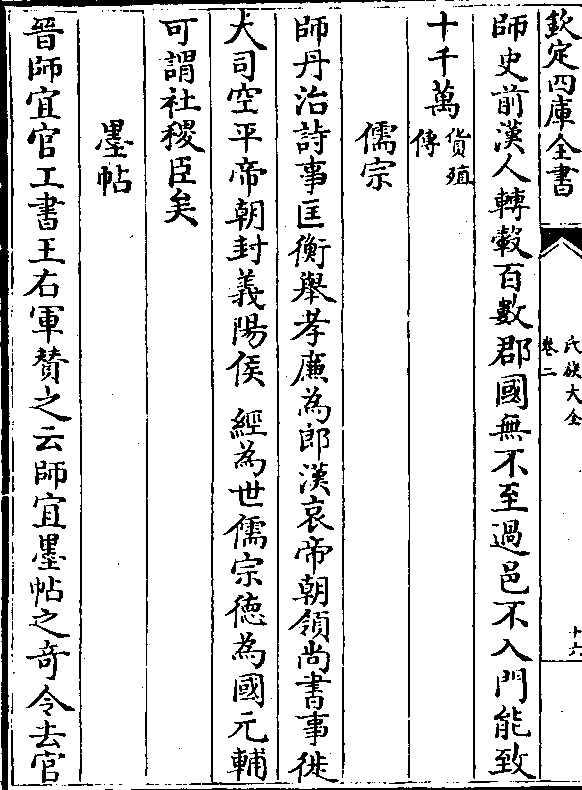 欽定四庫全書
氏族大全
卷二
十六
師史前漢人轉轂百數郡國無不至過邑不入門能致
十千萬貨殖傳
儒宗
師丹治詩事匡衡舉孝廉為郎漢哀帝朝領尚書事徙
大司空平帝朝封義陽侯 經為世儒宗徳為國元輔
可謂社稷臣矣
墨帖
晉師宜官工書王右軍贊之云師宜墨帖之竒令去官